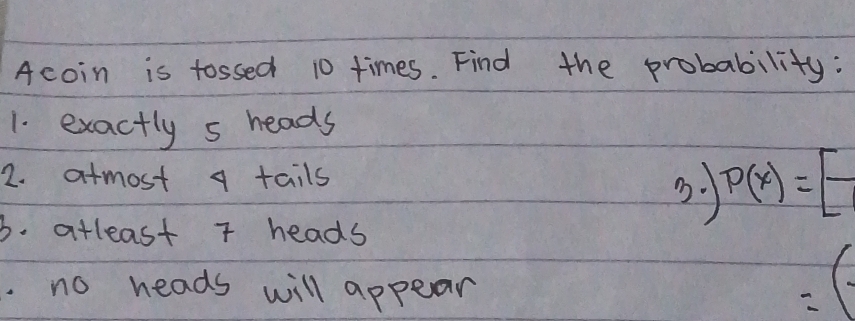 A coin is tossed 10 times. Find the probability:
1. exactly 5 heads
2. atmost 4 tails
3. atleast 7 heads
. no heads will appear
3.) P(x) = [
= (